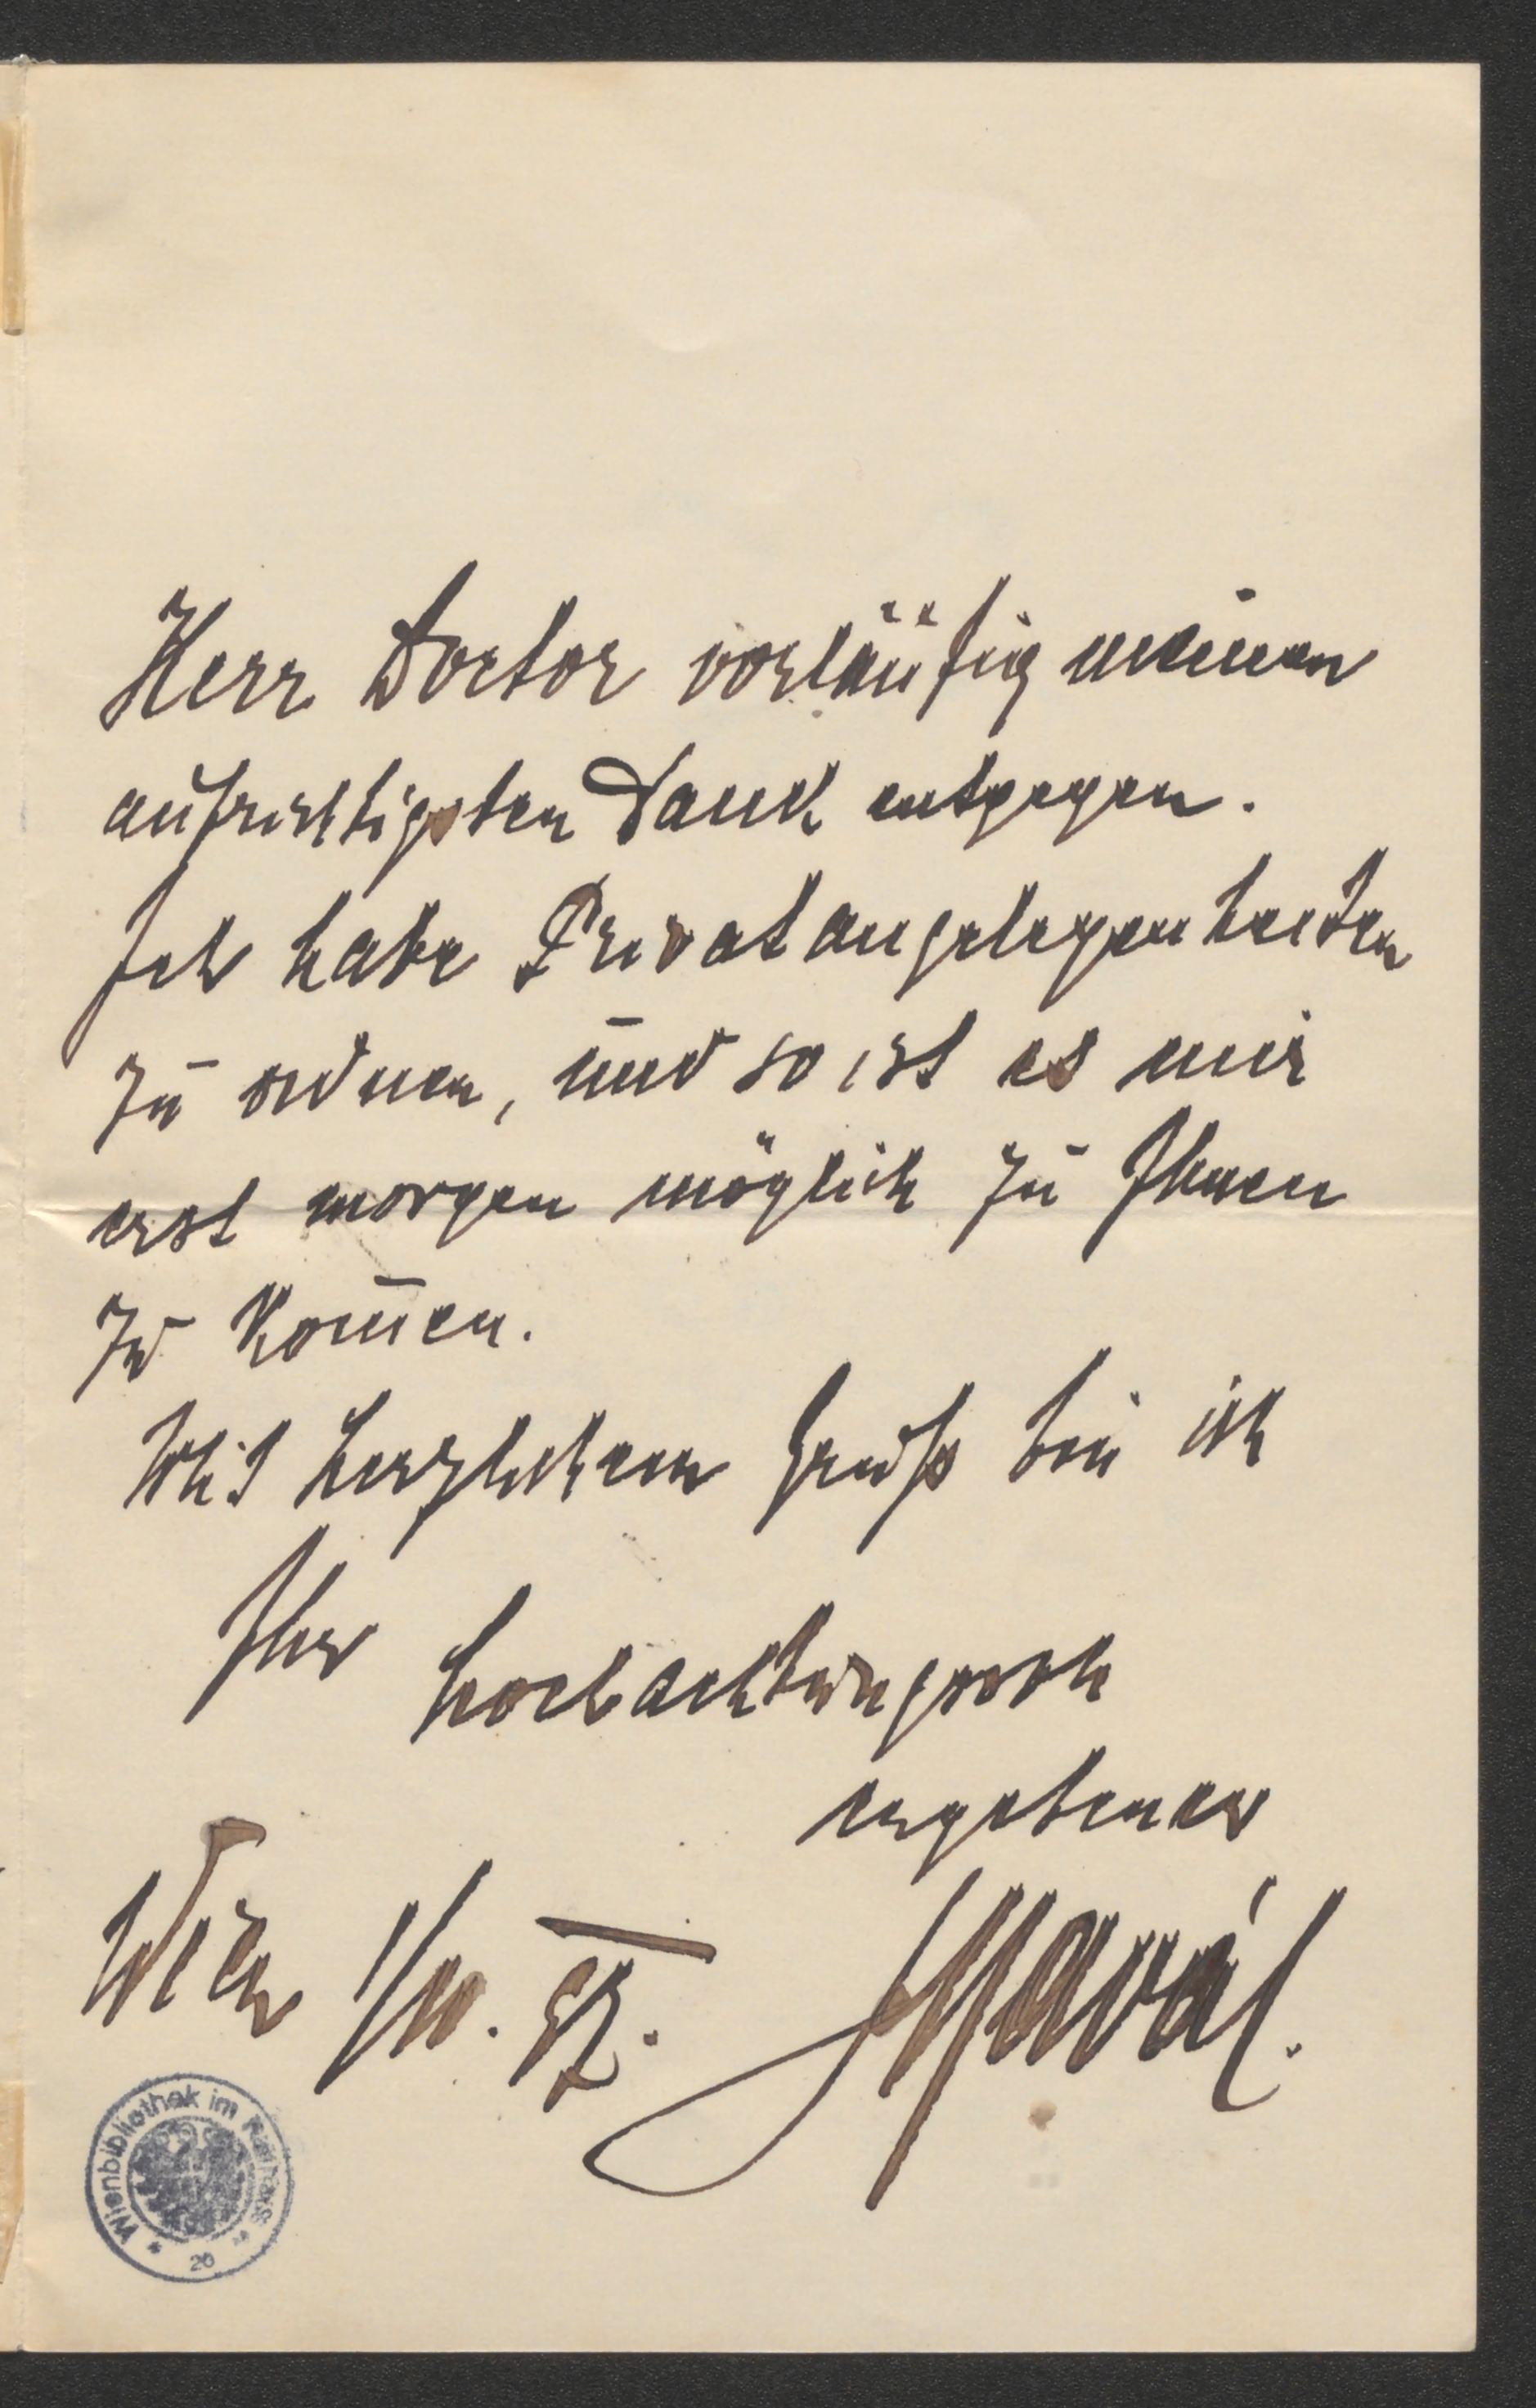 Herr Doctor vorläufig meinen
aufrichtigsten Dank entgegen.
Ich habe Privatangelegenheiten
zu ordnen, und so ist es mir
erst morgen möglich zu Ihnen
zu kom̅en.
Mit herzlichem Gruß bin ich
Ihr
hochachtungsvoll
ergebener
Wien 1/10.
Wienbibliothek im Rathaus
26